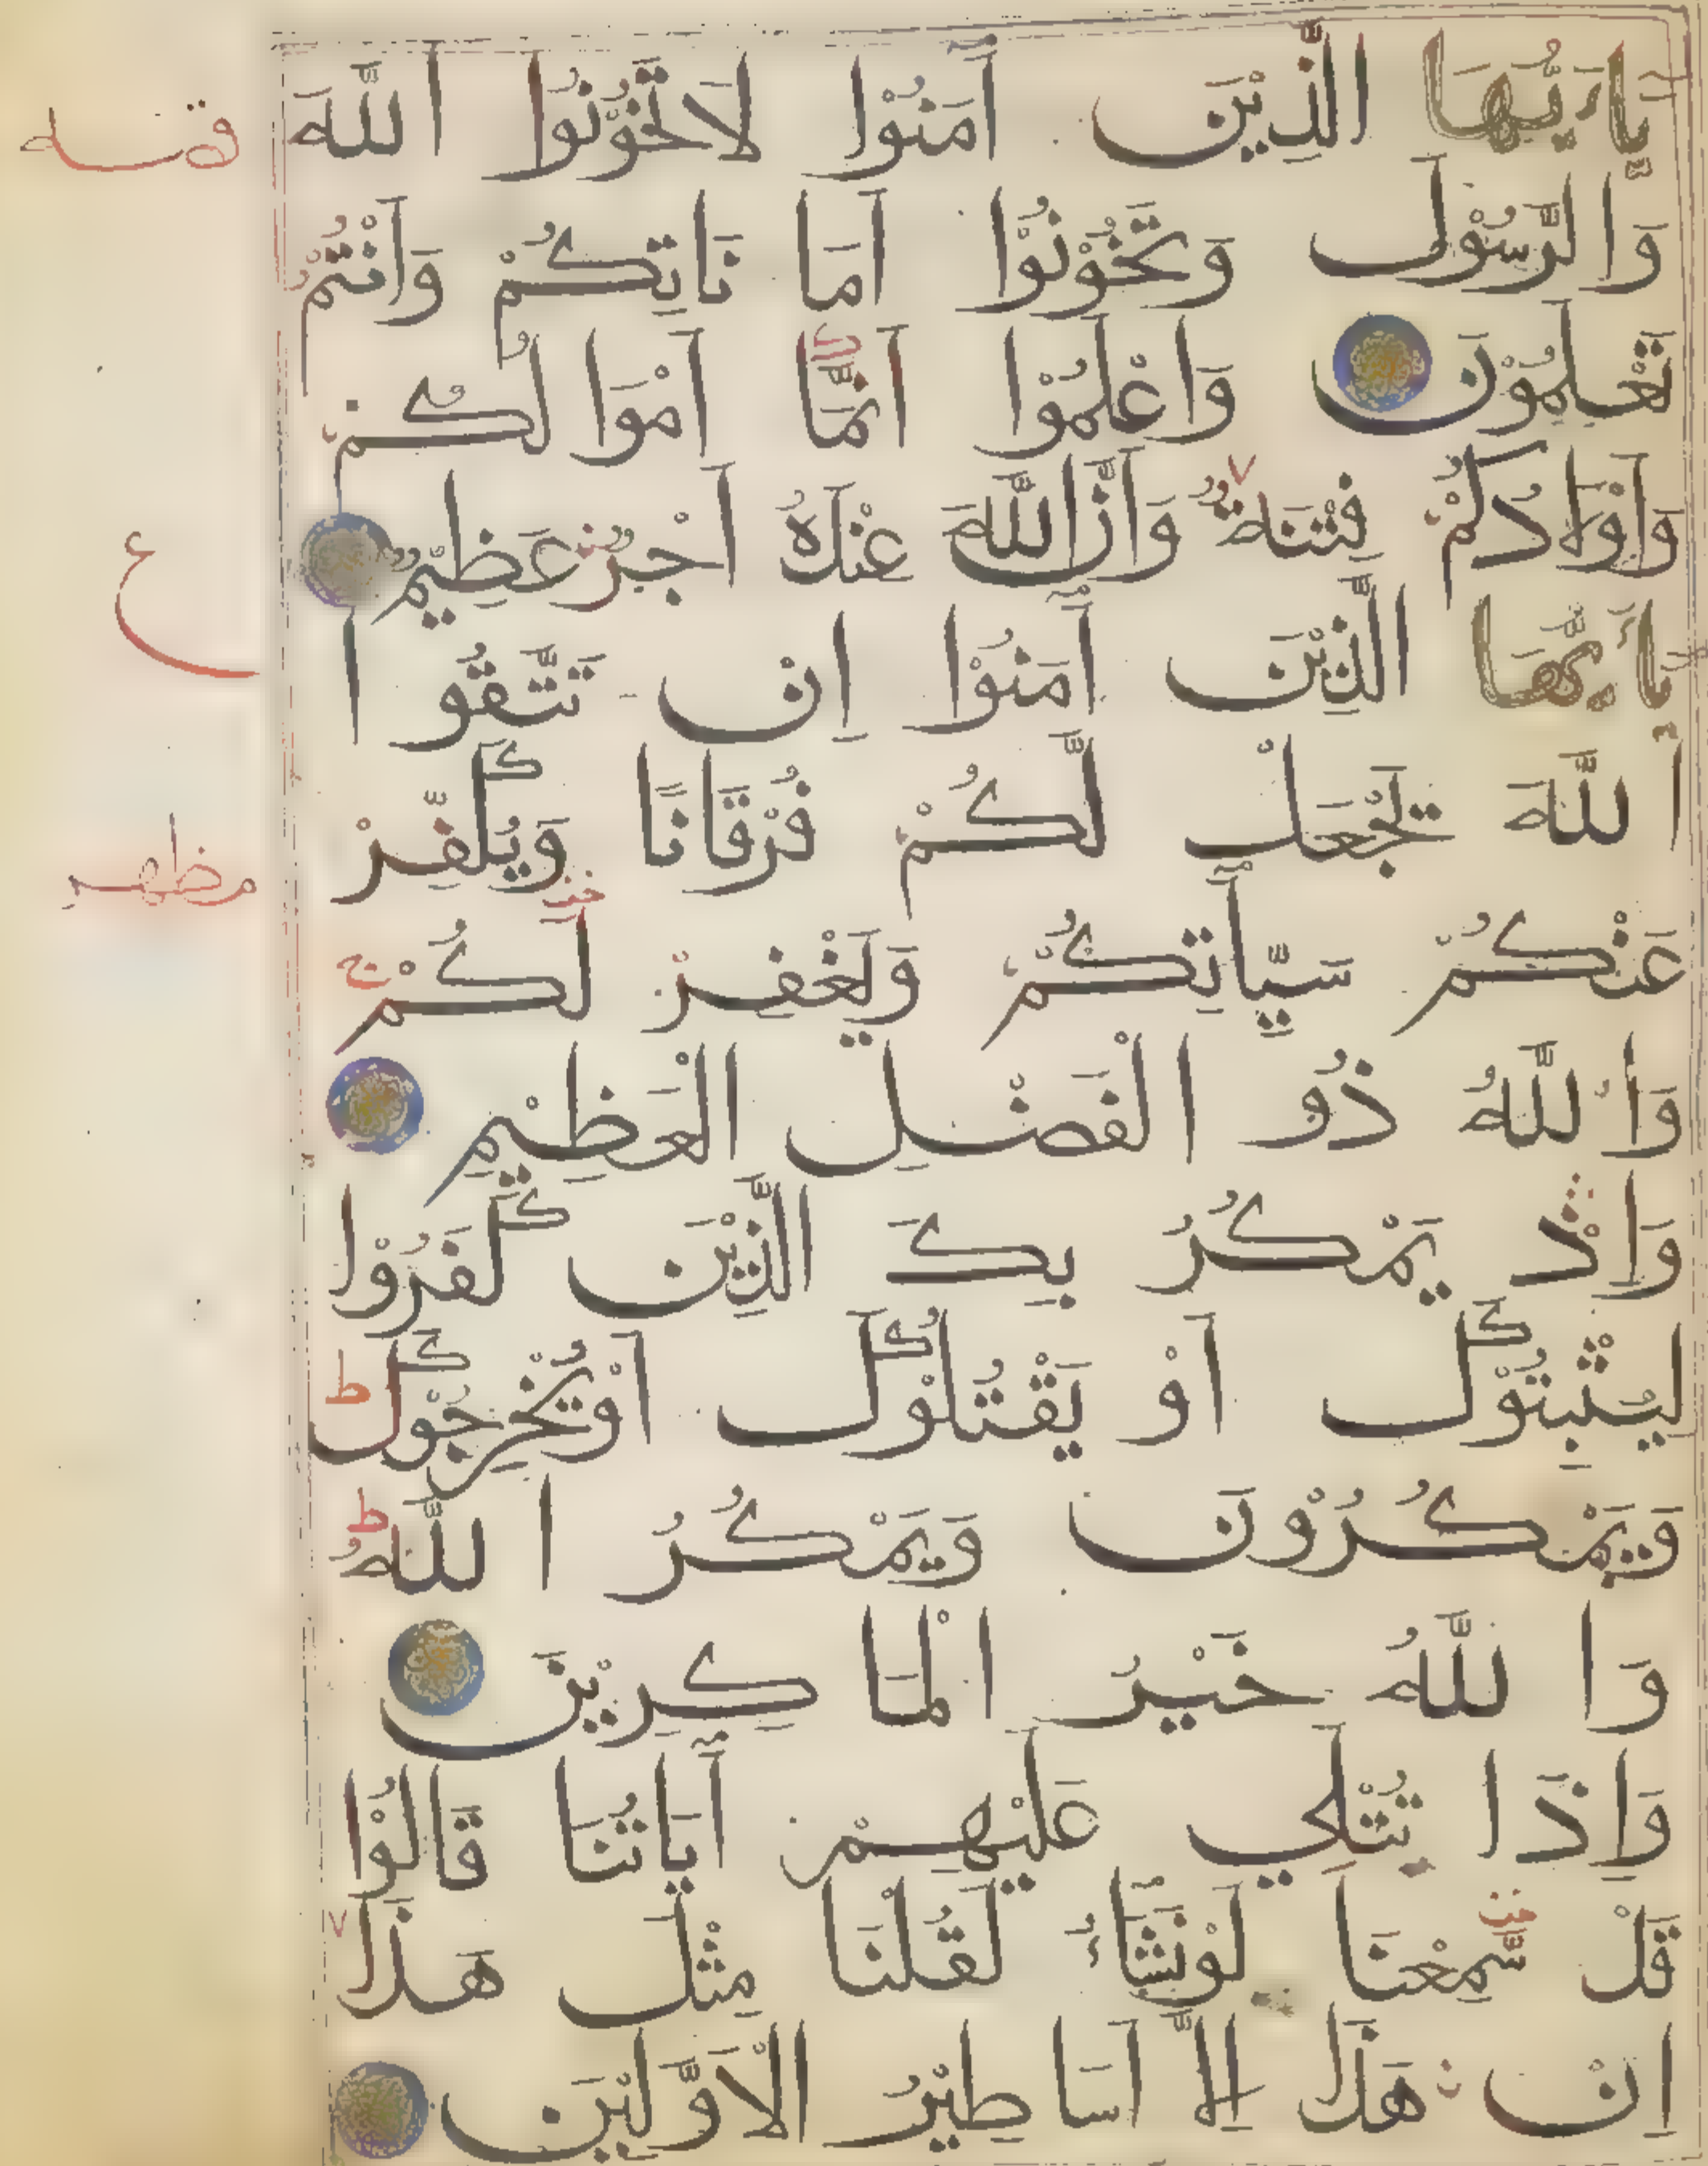 يَاأَيُّهَا الَّذِيْنَ آمَنُوْا لَا تَخُوْنُوا اللَّهَ
وَالرَّسُوْلَ وَتَخُوْنُوْا أَمَانَاتِكُمْ وَأَنْتُمْ
تَعْلَمُوْنَ وَاعْلَمُوْا أَنَّمَا أَمْوَالُكُمْ
وَأَوْلَادُكُمْ فِتْنَةٌ وَأَنَّ اللَّهَ عِنْدَهُ أَجْرٌ عَظِيْمٌ
يَاأَيُّهَا الَّذِيْنَ آمَنُوْا إِنْ تَتَّقُوا
اللَّهَ يَجْعَلْ لَّكُمْ فُرْقَانًا وَيُكَفِّرْ
عَنْكُمْ سَيِّآتِكُمْ وَيَغْفِرْ لَكُمْ ج
وَاللَّهُ ذُو الْفَضْلِ الْعَظِيْمِ
وَإِذْ يَمْكُرُ بِكَ الَّذِيْنَ كَفَرُوْا
لِيُثْبِتُوْكَ أَوْ يَقْتُلُوْكَ أَوْ يُخْرِجُوْكَ ط
وَيَمْكُرُوْنَ وَيَمْكُرُ اللَّهُ ط
وَاللَّهُ خَيْرُ الْمَاكِرِيْنَ
وَإِذَا تُتْلَى عَلَيْهِمْ آيَاتُنَا قَالُوْا
قَدْ سَّمِعْنَا لَوْ نَشَآءُ لَقُلْنَا مِثْلَ هَذَا
إِنْ هَذَا إِلَّا أَسَاطِيْرُ الْأَوَّلِيْنَ
ع